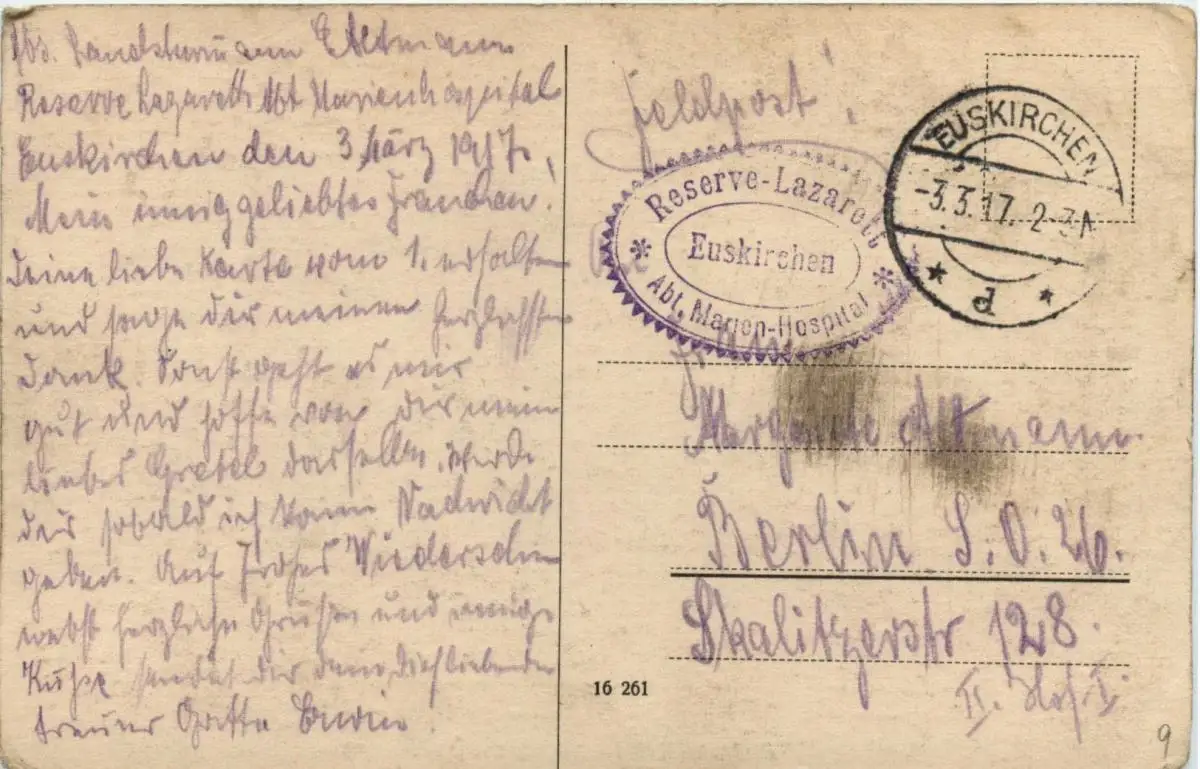 Abs. Landsturmmann E. Altmann
Reserve Lazarett Abt Marienhospital
Euskirchen den 3 März 1917.
Mein inniggeliebtes Frauchen!
Deine liebe Karte vom 1. erhalten
und sage dir meinen herzlichsten
Dank. Sonst geht es mir
gut und hoffe von dir mein
liebes Gretel dasselbe. Werde
dir sobald ich kann Nachricht
geben. Auf frohes Wiedersehn
nebst herzliche Grüßen und innige
Küsse sendet dir dein dich liebender
treuer Gatte Erwin.
Feldpost!
EUSKIRCHEN
-3.3.17. 2-3N
* d *
Reserve-Lazarett
* Euskirchen *
Abt. Marien-Hospital
An
Frau
Margarete Altmann.
Berlin S.O. 26.
Skalitzerstr 128.
II. Hof I.
16 261
9